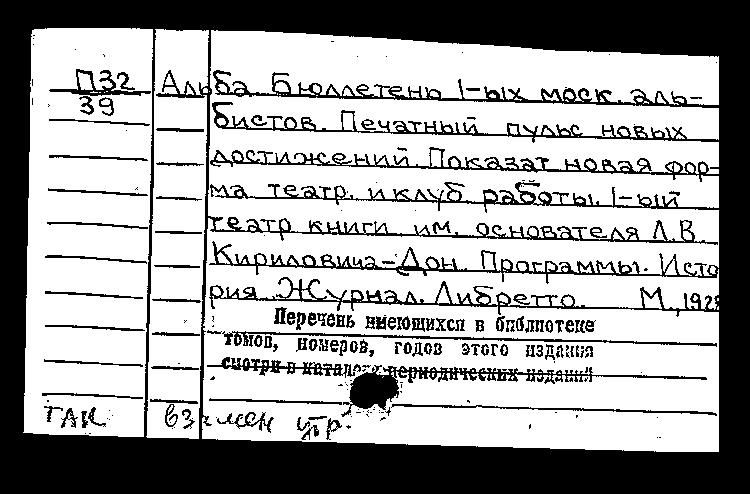 П32 Альба. Бюллетень 1-ых моск. аль-
39 бистов. Печатный пульс новых
достижений. Показат. новая фор-
ма театр. и клуб работы. 1-ый
театр книги им. основателя Л.В.
Кириловича-Дон. Программы. Исто
рия. Журнал. Либретто. М., 1928
Перечень имеющихся в библиотеке
томов, номеров, годов этого издания
смотри в каталоге периодических изданий
ГАК взамен утр.